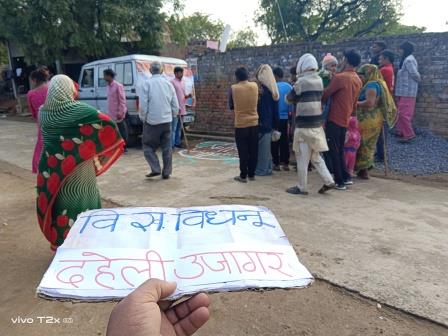 वि स. विधनू
दहेली उजागर
vivo T2x